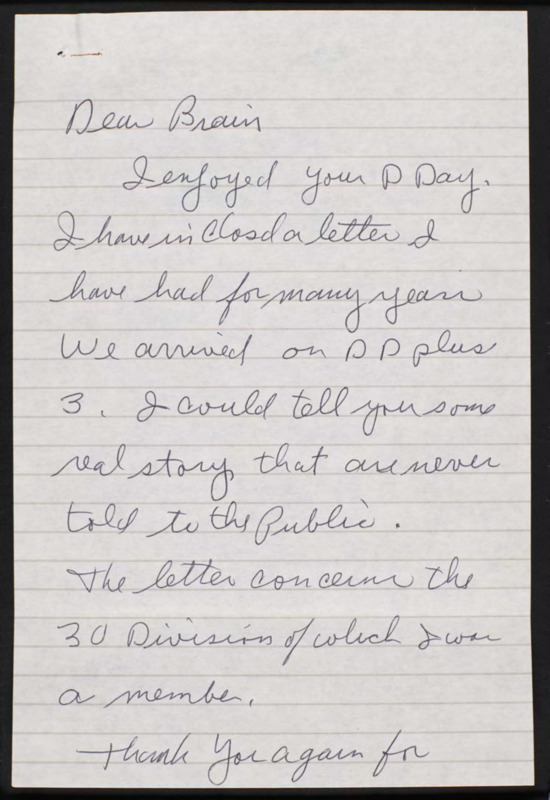 Dear Brain
I enjoyed your D Day.
I have in closd a letter I
have had for many years
We arrived on D D plus
3. I could tell you some
real story that are never
told to the Public.
The letter concerns the
30 Division of which I was
a member.
Thank You again for